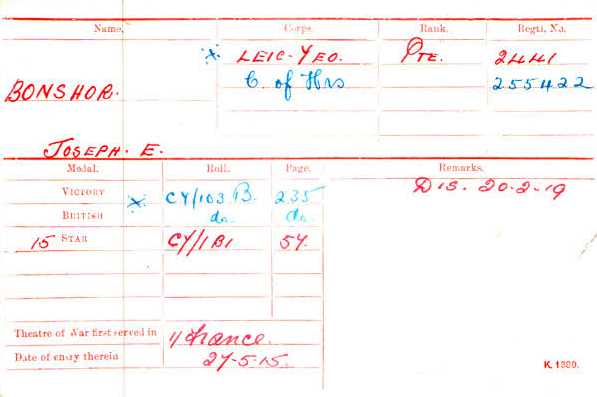 Name. Corps. Rank. Regtl. No.
LEIC. YEO. PTE. 2441
BONSHOR. C. of Hrs 255422
JOSEPH. E.
Medal. Roll. Page. Remarks.
VICTORY CY/103 B. 235 DIS. 20-2-19
BRITISH do. do.
15 STAR CY/1B1 54.
Theatre of War first served in 1) France.
Date of entry therein 27-5-15.
K. 1380.